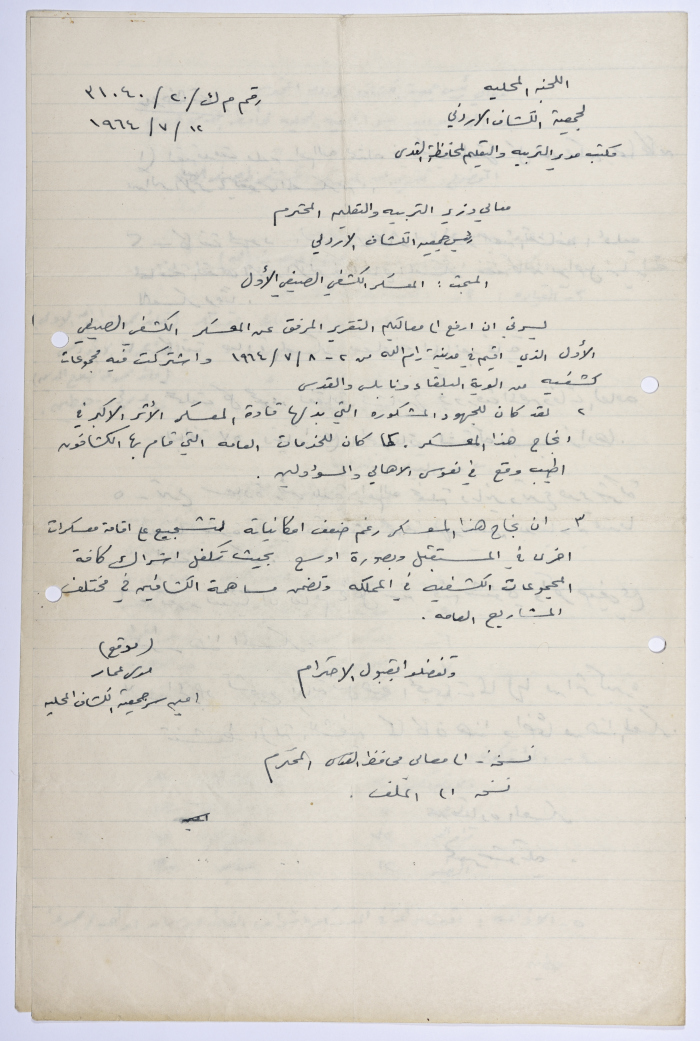 اللجنة المحليه
لجمعية الكشاف الاردني
مكتب مدير التربيه والتعليم لمحافظة القدس
رقم م ك/٢٠/٣١٠٤٠
١٢/٧/١٩٦٤
معالي وزير التربيه والتعليم المحترم
رئيس جمعية الكشاف الاردني
المبحث : المعسكر الكشفي الصيفي الأول
يسرني ان ارفع الى معاليكم التقرير المرفق عن المعسكر الكشفي الصيفي
الأول الذي اقيم في مدينة رام الله من ٢-٨/٧/١٩٦٤ واشتركت فيه مجموعات
كشفيه من الوية البلقاء ونابلس والقدس
٢ لقد كان للجهود المشكوره التي بذلها قادة المعسكر الأثر الاكبر في
انجاح هذا المعسكر. كما كان للخدمات العامه التي قام بها الكشافون
اطيب وقع في نفوس الاهالي والمسؤولين .
٣- ان نجاح هذا المعسكر رغم ضعف امكانياته لتشجيع على اقامة معسكرات
اخرى في المستقبل وبصورة اوسع بحيث تكفل اشتراك كافة
المجموعات الكشفيه في المملكه وتضمن مساهمة الكشافين في مختلف
المشاريع العامه .
وتفضلوا بقبول الاحترام
(موقع)
موسى عمار
امين سر جمعية الكشاف المحليه
نسخة - الى معالي محافظ القدس المحترم
نسخة الى الملف .